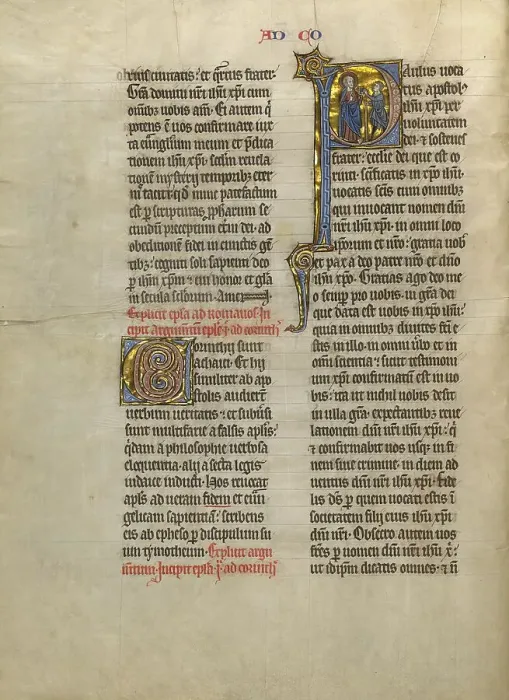 AD CO
ariustiuitatis: et qrtus frater.
Gra domini nri ihu xpi cum
omibz uobis am̄. Ei autem q̄
potens ē uos confirmare iux
ta euāgliium meum et p̄dica
tionem ihu xpi. scdm reuela
tionē mysterij temporibz eter
ni taciti: qd nunc patefactum
est p scripturas ppharum se
cundū preceptum eterni dei. ad
obeditionē fidei in cunctis gē
tibz: cogniti soli sapienti deo
p ihm xpm: cui honor et gl̄a
in secula seculorum. Amen
Explicit epl̄a ad romanos. In
cipit argumtū epl̄e p̄ ad corinth̄
Corinthij sunt
achaici. Et hij
similiter ab apo
stolis audierūt
uerbum ueritatis. et subūsi
sunt multifarie a falsis apl̄is:
q̄dam a philosophie uerbosa
eloquentia. alij a secta legis
iudaice inducti. Hos reuocat
apl̄s ad ueram fidem et euā
gelicam sapientiam: scribens
eis ab epheso p discipulum su
um tymotheum. Explicit argu
mtum. Incipit epl̄a p̄ ad corinth̄
Paulus uoca
tus apostol'
ihu xpi per
uoluntatem
dei. et sostenes
frater: ecclie dei que est co
rinti. sc̄ificatis in xpo ihu.
uocatis sc̄is cum omnibz
qui inuocant nomen dn̄i
nr̄i ihu xpi. in omni loco
ipsorum et nr̄o: gratia uob̄
et pax a deo patre nr̄o et dn̄o
ihu xpo. Gratias ago deo me
o semp pro uobis. in gr̄a dei
que data est uobis in xpo ihu:
quia in omnibz diuites fc̄i e
stis in illo. in omni ūbo et in
omi scientia: sicut testimoni
um xpi confirmatū est in uo
bis: ita ut nichil nobis desit
in ulla gr̄a. expectantibz reue
lationem dn̄i nr̄i ihu xpi: q̄
et confirmabit uos usqz in fi
nem sine crimine. in diem ad
uentus dn̄i nr̄i ihu xpi. Fide
lis ds p quem uocati estis ī
societatem filij eius ihu xpi
dn̄i nr̄i. Obsecro autem uos
fr̄es p nomen dn̄i nr̄i ihu x̄:
ut idipm dicatis omnes. et n̄